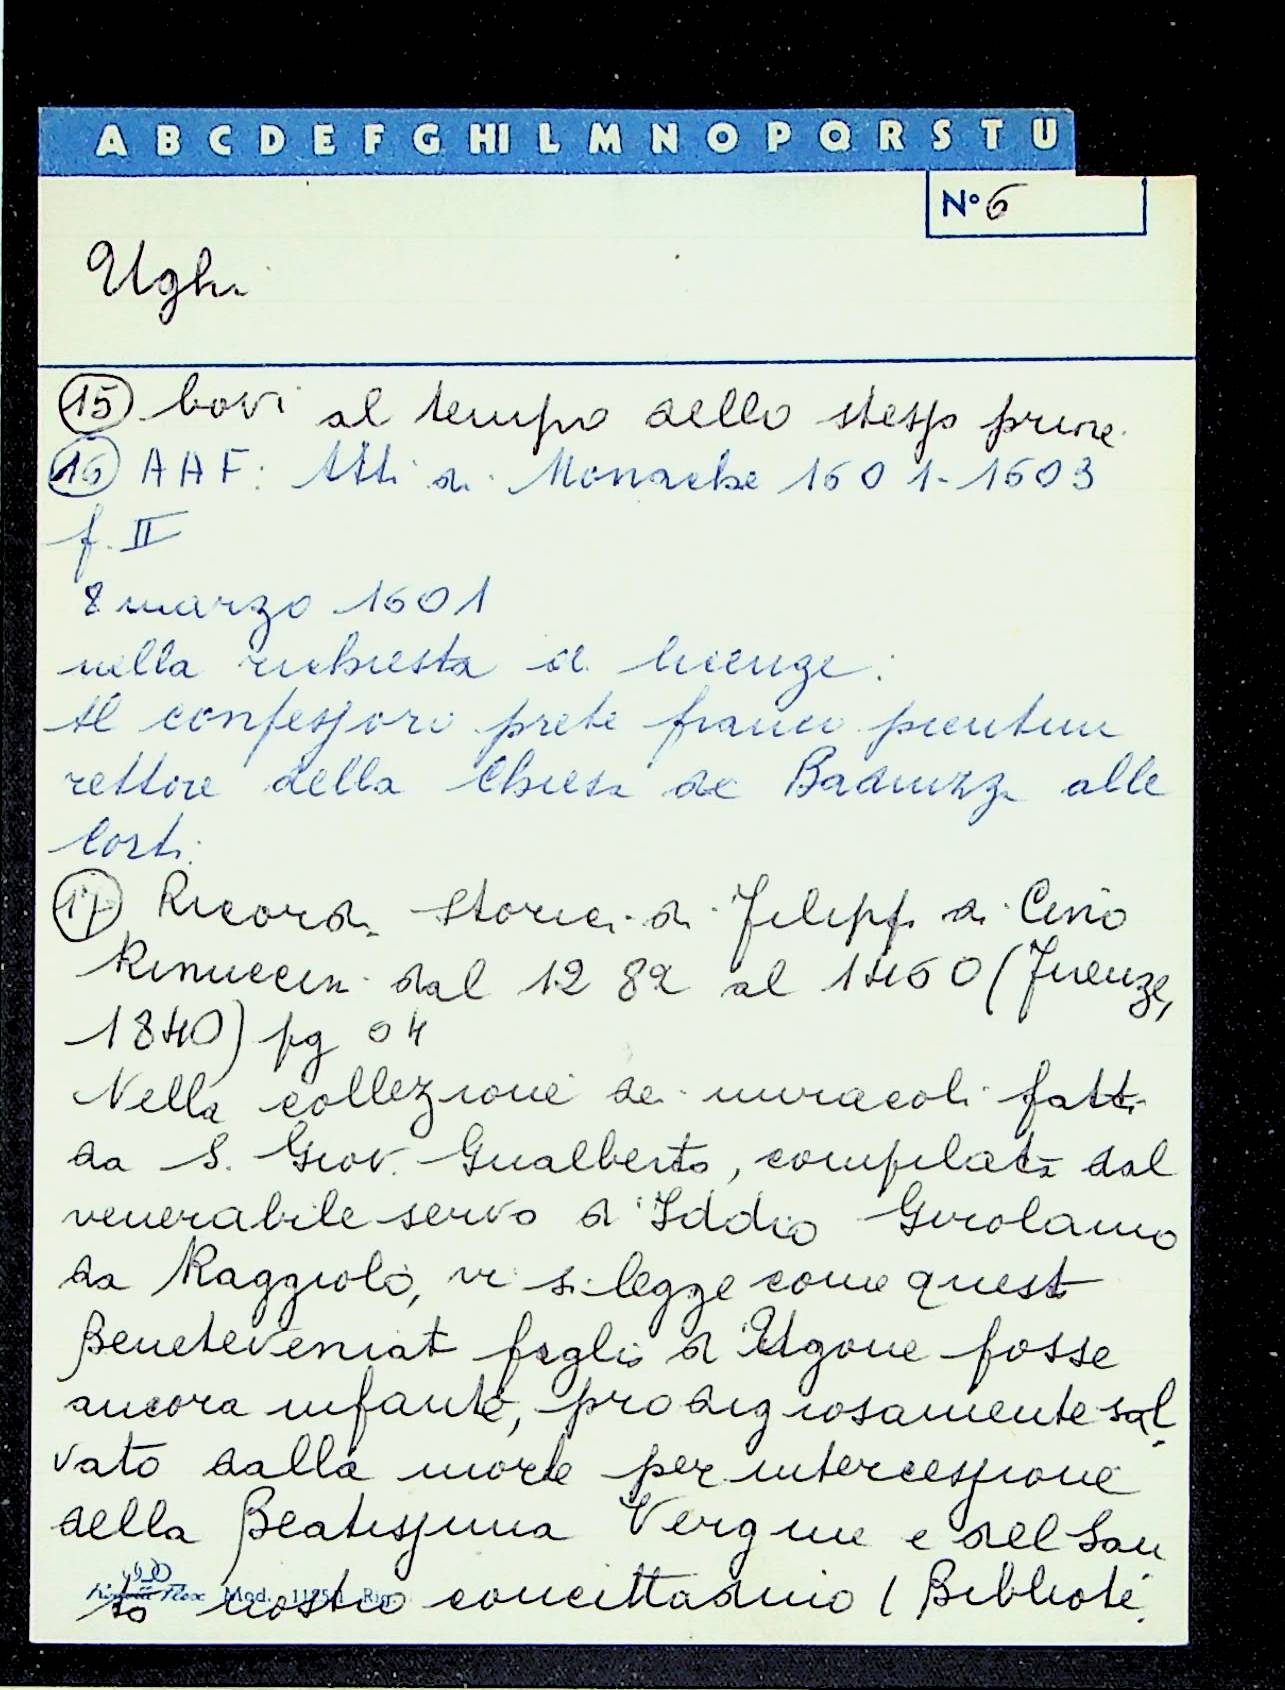 A B C D E F G HI L M N O P Q R S T U
N° 6
Ughi
15 bovi al tempo dello stesso
16 AAF: Atti di Monache 1601-1603
f. II
8 marzo 1601
nella richiesta di licenze:
Al confessoro prete
rettore della Chiesa de alle
Corti:
17 Ricordi storici di Filippo di Cino
Rinuccini dal 1282 al 1460 (Firenze,
1840) pg 04
Nella collezione dei miracoli fatti
da S. Giov. Gualberto, compilata dal
venerabile servo d'Iddio Girolamo
da Raggiolo, vi si legge come quest
Beneteveniat foglio d'Ugone fosse
ancora infante, prodigiosamente sal
vato dalla morte per intercessione
della Beatissima Vergine e del San
to nostro concittadino ( Bibliote
Mod.